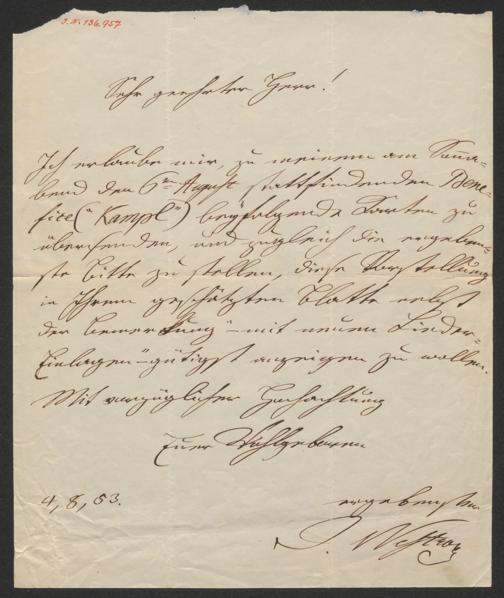 I.N. 136.957
Sehr geehrter Herr!
Ich erlaube mir, zu meinem am Sonna-
bend den 6ten August stattfindenden Bene-
fice („Kampl“) beyfolgende Karten zu
übersenden, und zugleich die ergeben-
ste Bitte zu stellen, diese Vorstellung
in Ihrem geschätzten Blatte nebst
der Bemerkung „mit neuen Lieder-
Einlagen“ gütigst anzeigen zu wollen.
Mit vorzüglicher Hochachtung
Euer Wohlgeboren
4/8, 53.
ergebenster
J. Nestroy